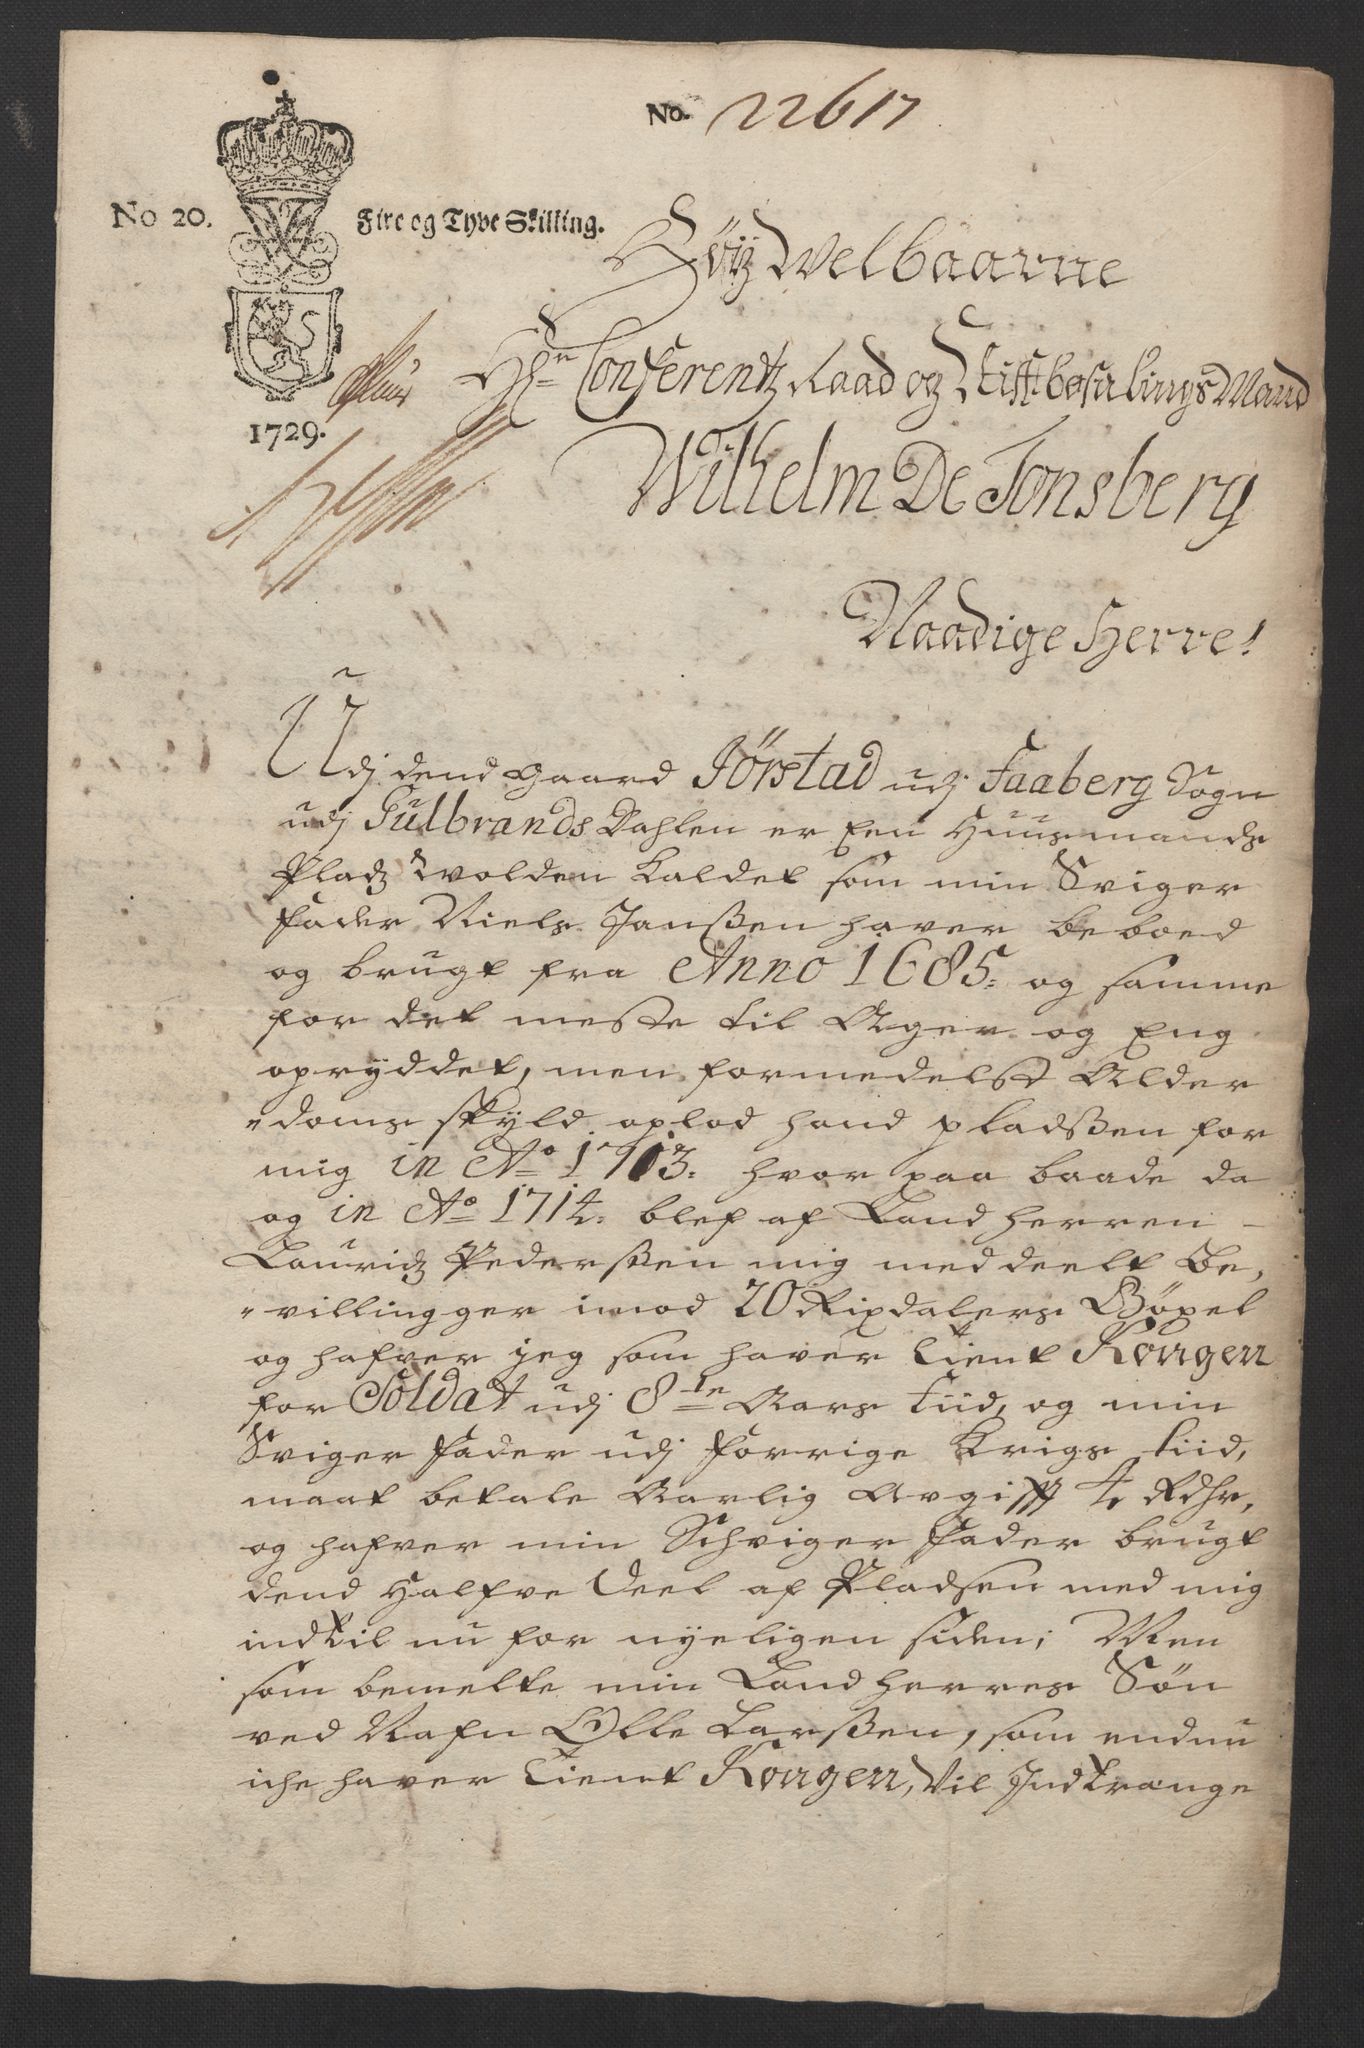 No. 22617
No 20. Fire og Tyve Skilling.
1729.
Höÿ Welbaarne
Hr Conferentz Raad og Stiftbefalings Mand
Wilhelm De Tonsberg
Naadige Herre!
Udj dend gaard Jörstad udj Faaberg Sogn
udj Gulbrands Dahlen er Een Huusmands
Pladz Wolden kaldet som min Sviger
fader Niels Janßen haver beboed
og brugt fra Anno 1685: og samme
for det meste til Ager og Eng
opryddet, men formedelst Alder
"doms skyld oplod hand pladßen for
mig in Ao 1713: hvor paa baade da
og in Ao 1714: blef af Landherren
Lauridz Pederßen mig meddeelt Be,
"villingger imod 20 Rixdalers Böxel
og hafver jeg som haver tient Kongen
for Soldat udj 8te Aars tiid, og min
Sviger fader udj forrige Krigs tiid,
maat betale Aarlig Avgifft 4 Rdhr,
og hafver min Schviger fader brugt
dend Halfve Deel af Pladsen med mig
indtil nu for nyeligen siden; Men
som bemelte min Landherres Sön
ved Nafn Olle Larßen, som endnu
iche haver tient Kongen, Vil Indtrange